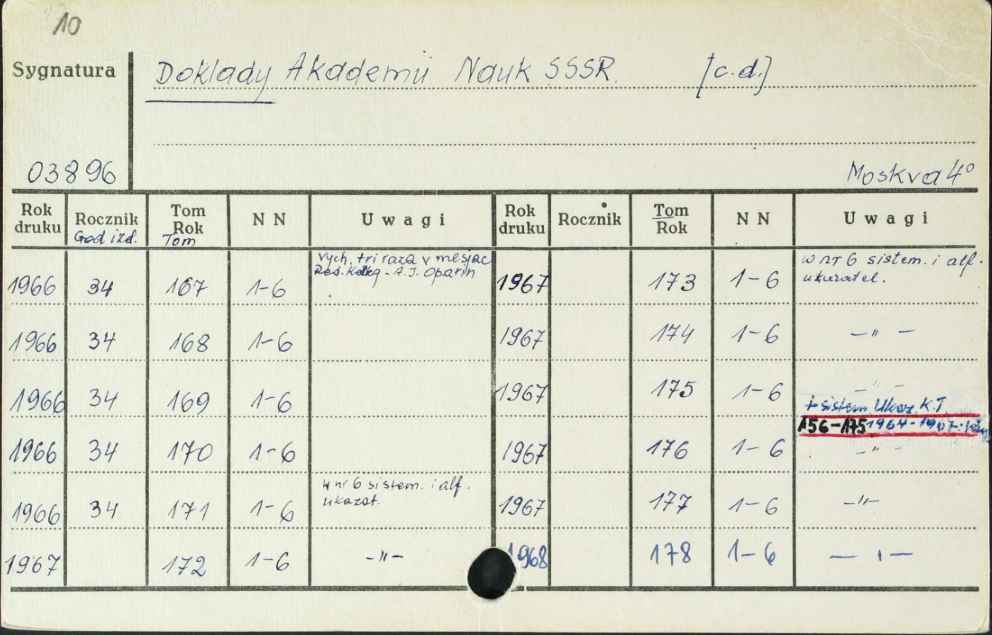 10
Sygnatura
Doklady Akademii Nauk SSSR. [c.d.]
03896
Moskva 4°
Rok druku Rocznik God izd. Tom Rok Tom NN Uwagi Rok druku Rocznik Tom Rok NN Uwagi
1966 34 167 1-6 vych. tri raza v mesjac A.I. Oparin 1967 173 1-6 w nr 6 sistem. i alf. ukazatel.
1966 34 168 1-6 1967 174 1-6 —"—
1966 34 169 1-6 1967 175 1-6 —"—
+ sistem Ukaz. K.T
156-175 1964-1967
1966 34 170 1-6 1967 176 1-6 —"—
1966 34 171 1-6 w nr 6 sistem. i alf. ukazat. 1967 177 1-6 —"—
1967 172 1-6 —"— 1968 178 1-6 —"—